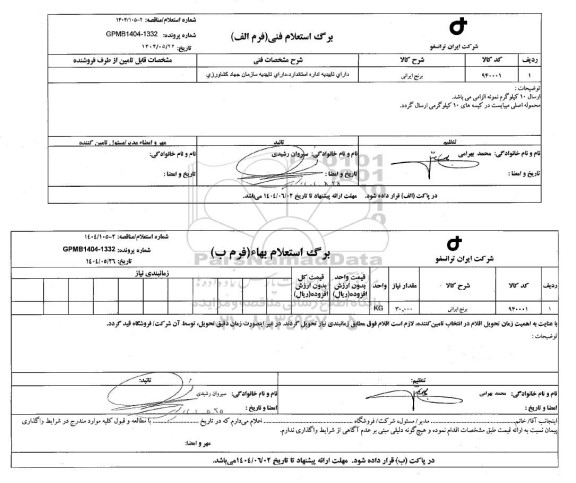 شماره استعلام/مناقصه: ۱۴۰۴/۱۰۵-۲
برگ استعلام فنی(فرم الف)
شماره پرونده: GPMB1404-1332
شرکت ایران ترانسفو
ردیف
کد کالا
شرح کالا
شرح مشخصات فنی
مشخصات قابل تامین از طرف فروشنده
۱
۹۴۰۰۰۱
برنج ایرانی
دارای تاییدیه اداره استاندارد-دارای تاییدیه سازمان جهاد کشاورزی
توضیحات :
ارسال ۱۰ کیلوگرم نمونه الزامی می باشد.
محموله اصلی میبایست در کیسه های ۱۰ کیلوگرمی ارسال گردد.
تنظیم
تائید
مهر و امضاء مدیر/مسئول تامین کننده
نام و نام خانوادگی: محمد بهرامی
نام و نام خانوادگی: سیروان رشیدی
نام و نام خانوادگی:
تاریخ و امضا :
تاریخ و امضا :
تاریخ و امضا :
در پاکت (الف) قرار داده شود. مهلت ارائه پیشنهاد تا تاریخ ۱۴۰۴/۰۶/۰۲ می‌باشد.
شماره استعلام/مناقصه: ۱۴۰۴/۱۰۵-۲
برگ استعلام بهاء(فرم ب)
شماره پرونده: GPMB1404-1332
تاریخ: ۱۴۰۴/۰۵/۲۶
شرکت ایران ترانسفو
ردیف
کد کالا
شرح کالا
مقدار نیاز
واحد
قیمت واحد بدون ارزش افزوده(ریال)
قیمت کل بدون ارزش افزوده(ریال)
زمانبندی نیاز
۱
۹۴۰۰۰۱
برنج ایرانی
۳۰,۰۰۰
KG
ParsNamadData
با عنایت به اهمیت زمان تحویل اقلام در انتخاب تامین‌کننده، لازم است اقلام فوق مطابق زمانبندی نیاز تحویل گردند. در غیر اینصورت زمان دقیق تحویل، توسط آن شرکت/ فروشگاه قید گردد.
توضیحات :
تنظیم:
تائید:
نام و نام خانوادگی: محمد بهرامی
نام و نام خانوادگی: سیروان رشیدی
تاریخ و امضا :
تاریخ و امضا :
اینجانب آقا/ خانم مدیر/ مسئول، شرکت/ فروشگاه اعلام می‌دارم که در تاریخ با مطالعه و قبول کلیه موارد مندرج در شرایط واگذاری
پیمان نسبت به ارائه قیمت طبق مشخصات اقدام نموده و هیچ‌گونه دلیلی مبنی بر عدم آگاهی از شرایط واگذاری ندارم.
مهر و امضا:
در پاکت (ب) قرار داده شود. مهلت ارائه پیشنهاد تا تاریخ ۱۴۰۴/۰۶/۰۲می‌باشد.